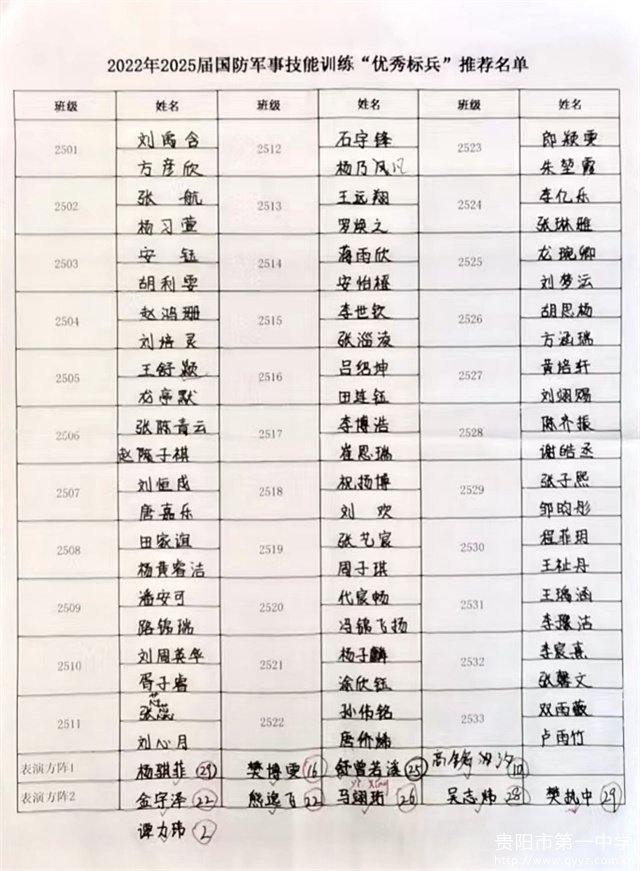 2022年2025届国防军事技能训练“优秀标兵”推荐名单
班级 姓名 班级 姓名 班级 姓名
2501 刘禹含 2512 石宇锋 2523 郎颖雯
方彦欣 杨乃凤凡 朱堃霞
2502 张航 2513 王远翔 2524 李亿乐
杨习萱 罗焕之 张琳雅
2503 安钰 2514 蒋雨欣 2525 龙琬卿
胡利雯 安怡橙 刘梦沄
2504 赵鸿珊 2515 李世钦 2526 胡思杨
刘培灵 张淄凌 方涵瑞
2505 王舒颖 2516 吕绍坤 2527 黄培轩
龙亭默 田连钰 刘翊赐
2506 张陈青云 2517 李博浩 2528 陈齐振
赵陈子祺 崔思瑞 谢皓丞
2507 刘恒成 2518 祝扬博 2529 张子熙
唐嘉乐 刘欢 邹昀彤
2508 田家谊 2519 张艺宸 2530 程菲玥
杨黄睿洁 周子琪 王祉丹
2509 潘安可 2520 代宸畅 2531 王瑀涵
路锦瑞 冯锦飞扬 李滕洁
2510 刘周英华 2521 杨子麟 2532 李宸熹
胥子睿 涂欣钰 张馨文
2511 张蕊 2522 孙伟铭 2533 双雨薇
刘心月 唐价炜 卢雨竹
表演方阵1 杨骐菲 21 樊博雯 16 舒曾若溪 25 高 汐 10
表演方阵2 金宇泽 22 熊逸飞 22 马翊珩 26 吴志炜 28 樊执中 29
谭力玮 2
贵阳市第一中学
http://www.gyyz.edu.cn